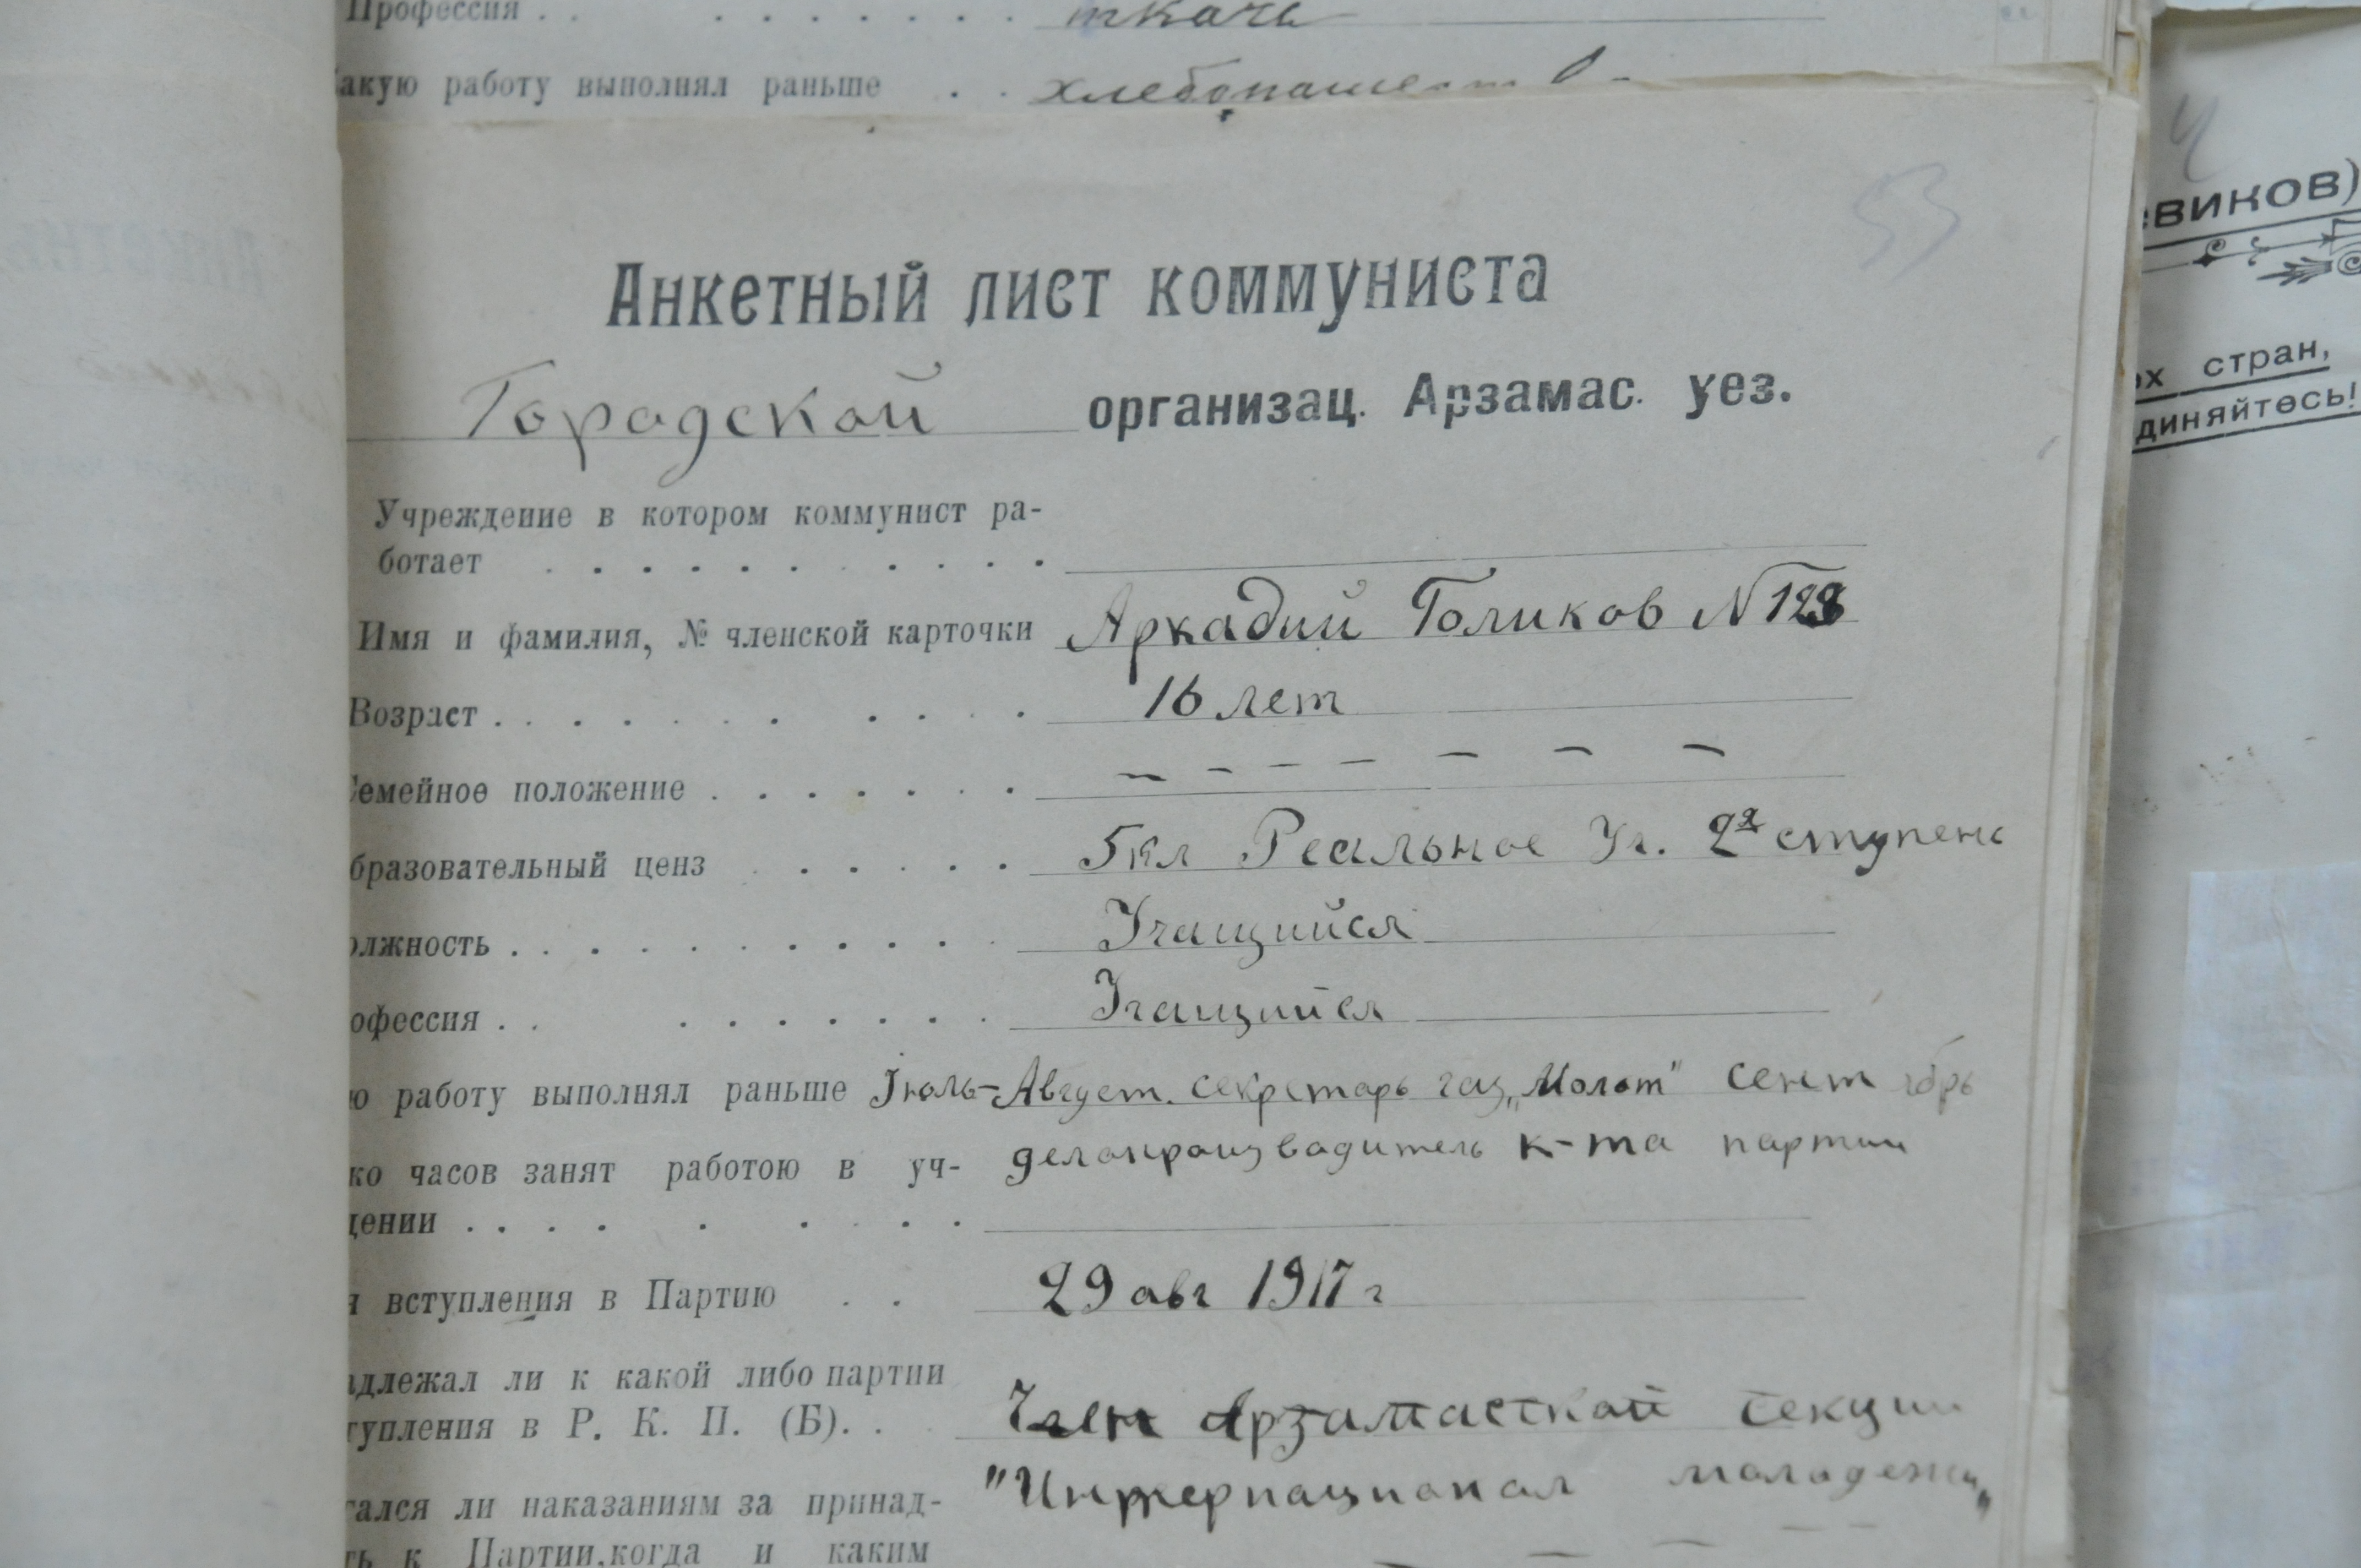 Профессия . . . . . . . . . ткачъ
акую работу выполнял раньше . .
53
Анкетный лист коммуниста
Городской организац. Арзамас. уез.
Учреждение в котором коммунист ра-
ботает . . . . . . . . . . .
Имя и фамилия, № членской карточки Аркадий Голиков N 128
Возраст . . . . . . . . . . . 16 лет
емейное положение . . . . . . . – – – – – – –
бразовательный ценз . . . . . 5 кл Реальное Уч. 2я ступень
олжность . . . . . . . . . . . Учащийся
офессия . . . . . . . . . Учащийся
ю работу выполнял раньше Iюль-Август. секретарь газ „Молот" сентябрь
ко часов занят работою в уч- делопроизводитель к-та партии
дении . . . . . . . . .
я вступления в Партию . . 29 авг 1917 г
адлежал ли к какой либо партии
тупления в Р. К. П. (Б). . Член Арзамасской секции
"Интернационал молодежи„
гался ли наказаниям за принад-
ть к Партии, когда и каким
евиков)
ех стран,
диняйтесь!